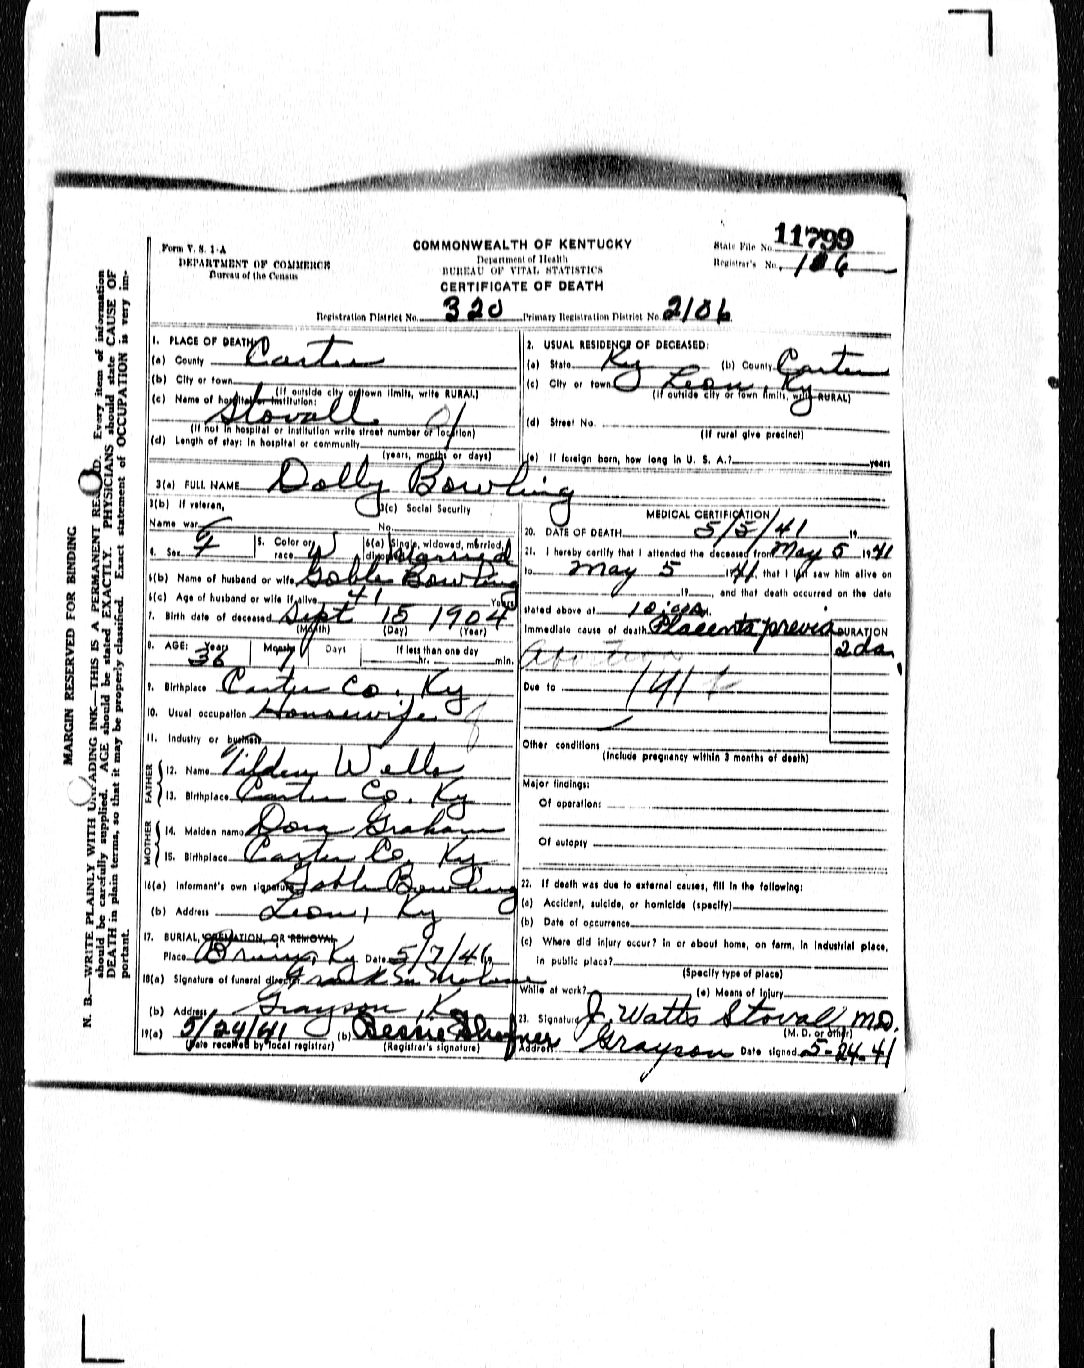 Form V. S. 1-A
DEPARTMENT OF COMMERCE
Bureau of the Census
COMMONWEALTH OF KENTUCKY
Department of Health
BUREAU OF VITAL STATISTICS
CERTIFICATE OF DEATH
State File No. 11799
Registrar's No. 106
Registration District No. 320 Primary Registration District No. 2106
1. PLACE OF DEATH
(a) County Carter
(b) City or town
(If outside city or town limits, write RURAL)
(c) Name of hospital or institution:
Stovall
(If not in hospital or institution write street number or location)
(d) Length of stay: In hospital or community
(years, months or days)
2. USUAL RESIDENCE OF DECEASED:
(a) State Ky (b) County Carter
(c) City or town Leon, Ky
(If outside city or town limits, write RURAL)
(d) Street No.
(If rural give precinct)
(e) If foreign born, how long in U. S. A.? years
3(a) FULL NAME Dolly Bowling
3(b) If veteran,
Name war
3(c) Social Security
No.
4. Sex F 5. Color or race W 6(a) Single, widowed, married, divorced Married
6(b) Name of husband or wife Goble Bowling
6(c) Age of husband or wife if alive 41 Years
7. Birth date of deceased Sept 15 1904
(Month) (Day) (Year)
8. AGE: Years 36 Months 7 Days If less than one day
hr. min.
9. Birthplace Carter Co. Ky
10. Usual occupation Housewife
11. Industry or business
FATHER
12. Name Tilden Wells
13. Birthplace Carter Co. Ky
MOTHER
14. Maiden name Dora Graham
15. Birthplace Carter Co, Ky
16(a) Informant's own signature Goble Bowling
(b) Address Leon, Ky
17. BURIAL, CREMATION, OR REMOVAL
Place Ky Date 5/7/41
18(a) Signature of funeral director
(b) Address Grayson, Ky
19(a) 5/24/41 (b) Bessie
(Date received by local registrar) (Registrar's signature)
MEDICAL CERTIFICATION
20. DATE OF DEATH 5/5/41 19
21. I hereby certify that I attended the deceased from May 5 1941
to May 5 1941, that I last saw him alive on
19 and that death occurred on the date
stated above at
Immediate cause of death Placenta previa DURATION
2 da
Abortion
Due to 141
Other conditions
(Include pregnancy within 3 months of death)
Major findings:
Of operation:
Of autopsy
22. If death was due to external causes, fill in the following:
(a) Accident, suicide, or homicide (specify)
(b) Date of occurrence
(c) Where did injury occur? In or about home, on farm, in industrial place,
in public place?
(Specify type of place)
While at work? (e) Means of Injury
23. Signature J. Watts Stovall M.D.
(M. D. or other)
Address Grayson Date signed 5-24-41
MARGIN RESERVED FOR BINDING
N. B.—WRITE PLAINLY WITH UNFADING INK—THIS IS A PERMANENT RECORD. Every item of information
should be carefully supplied. AGE should be stated EXACTLY. PHYSICIANS should state CAUSE OF
DEATH in plain terms, so that it may be properly classified. Exact statement of OCCUPATION is very im-
portant.